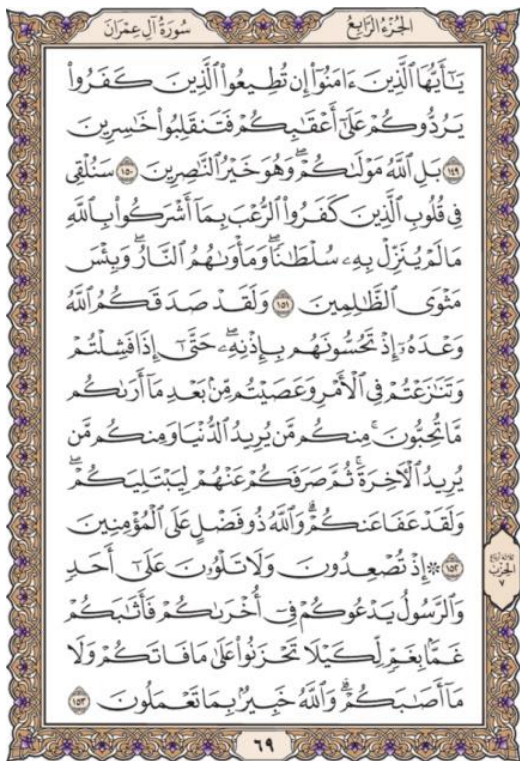 سُورَةُ آلِ عِمْرَانَ
الجُزْءُ الرَّابِعُ
يَـٰٓأَيُّهَا ٱلَّذِينَ ءَامَنُوٓا۟ إِن تُطِيعُوا۟ ٱلَّذِينَ كَفَرُوا۟
يَرُدُّوكُمْ عَلَىٰٓ أَعْقَـٰبِكُمْ فَتَنقَلِبُوا۟ خَـٰسِرِينَ
١٤٩ بَلِ ٱللَّهُ مَوْلَىٰكُمْ ۖ وَهُوَ خَيْرُ ٱلنَّـٰصِرِينَ ١٥٠ سَنُلْقِى
فِى قُلُوبِ ٱلَّذِينَ كَفَرُوا۟ ٱلرُّعْبَ بِمَآ أَشْرَكُوا۟ بِٱللَّهِ
مَا لَمْ يُنَزِّلْ بِهِۦ سُلْطَـٰنًا ۖ وَمَأْوَىٰهُمُ ٱلنَّارُ ۚ وَبِئْسَ
مَثْوَى ٱلظَّـٰلِمِينَ ١٥١ وَلَقَدْ صَدَقَكُمُ ٱللَّهُ
وَعْدَهُۥٓ إِذْ تَحُسُّونَهُم بِإِذْنِهِۦ ۖ حَتَّىٰٓ إِذَا فَشِلْتُمْ
وَتَنَـٰزَعْتُمْ فِى ٱلْأَمْرِ وَعَصَيْتُم مِّنۢ بَعْدِ مَآ أَرَىٰكُم
مَّا تُحِبُّونَ ۚ مِنكُم مَّن يُرِيدُ ٱلدُّنْيَا وَمِنكُم مَّن
يُرِيدُ ٱلْـَٔاخِرَةَ ۚ ثُمَّ صَرَفَكُمْ عَنْهُمْ لِيَبْتَلِيَكُمْ ۖ
وَلَقَدْ عَفَا عَنكُمْ ۗ وَٱللَّهُ ذُو فَضْلٍ عَلَى ٱلْمُؤْمِنِينَ
١٥٢ ۞ إِذْ تُصْعِدُونَ وَلَا تَلْوُۥنَ عَلَىٰٓ أَحَدٍ
وَٱلرَّسُولُ يَدْعُوكُمْ فِىٓ أُخْرَىٰكُمْ فَأَثَـٰبَكُمْ
غَمًّۢا بِغَمٍّ لِّكَيْلَا تَحْزَنُوا۟ عَلَىٰ مَا فَاتَكُمْ وَلَا
مَآ أَصَـٰبَكُمْ ۗ وَٱللَّهُ خَبِيرٌۢ بِمَا تَعْمَلُونَ ١٥٣
ثلاثة أرباع
الحزب
٧
٦٩